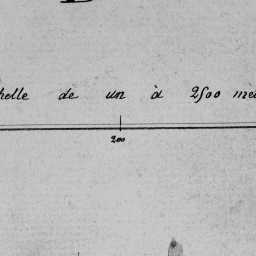 helle de un à 2500 mè
200